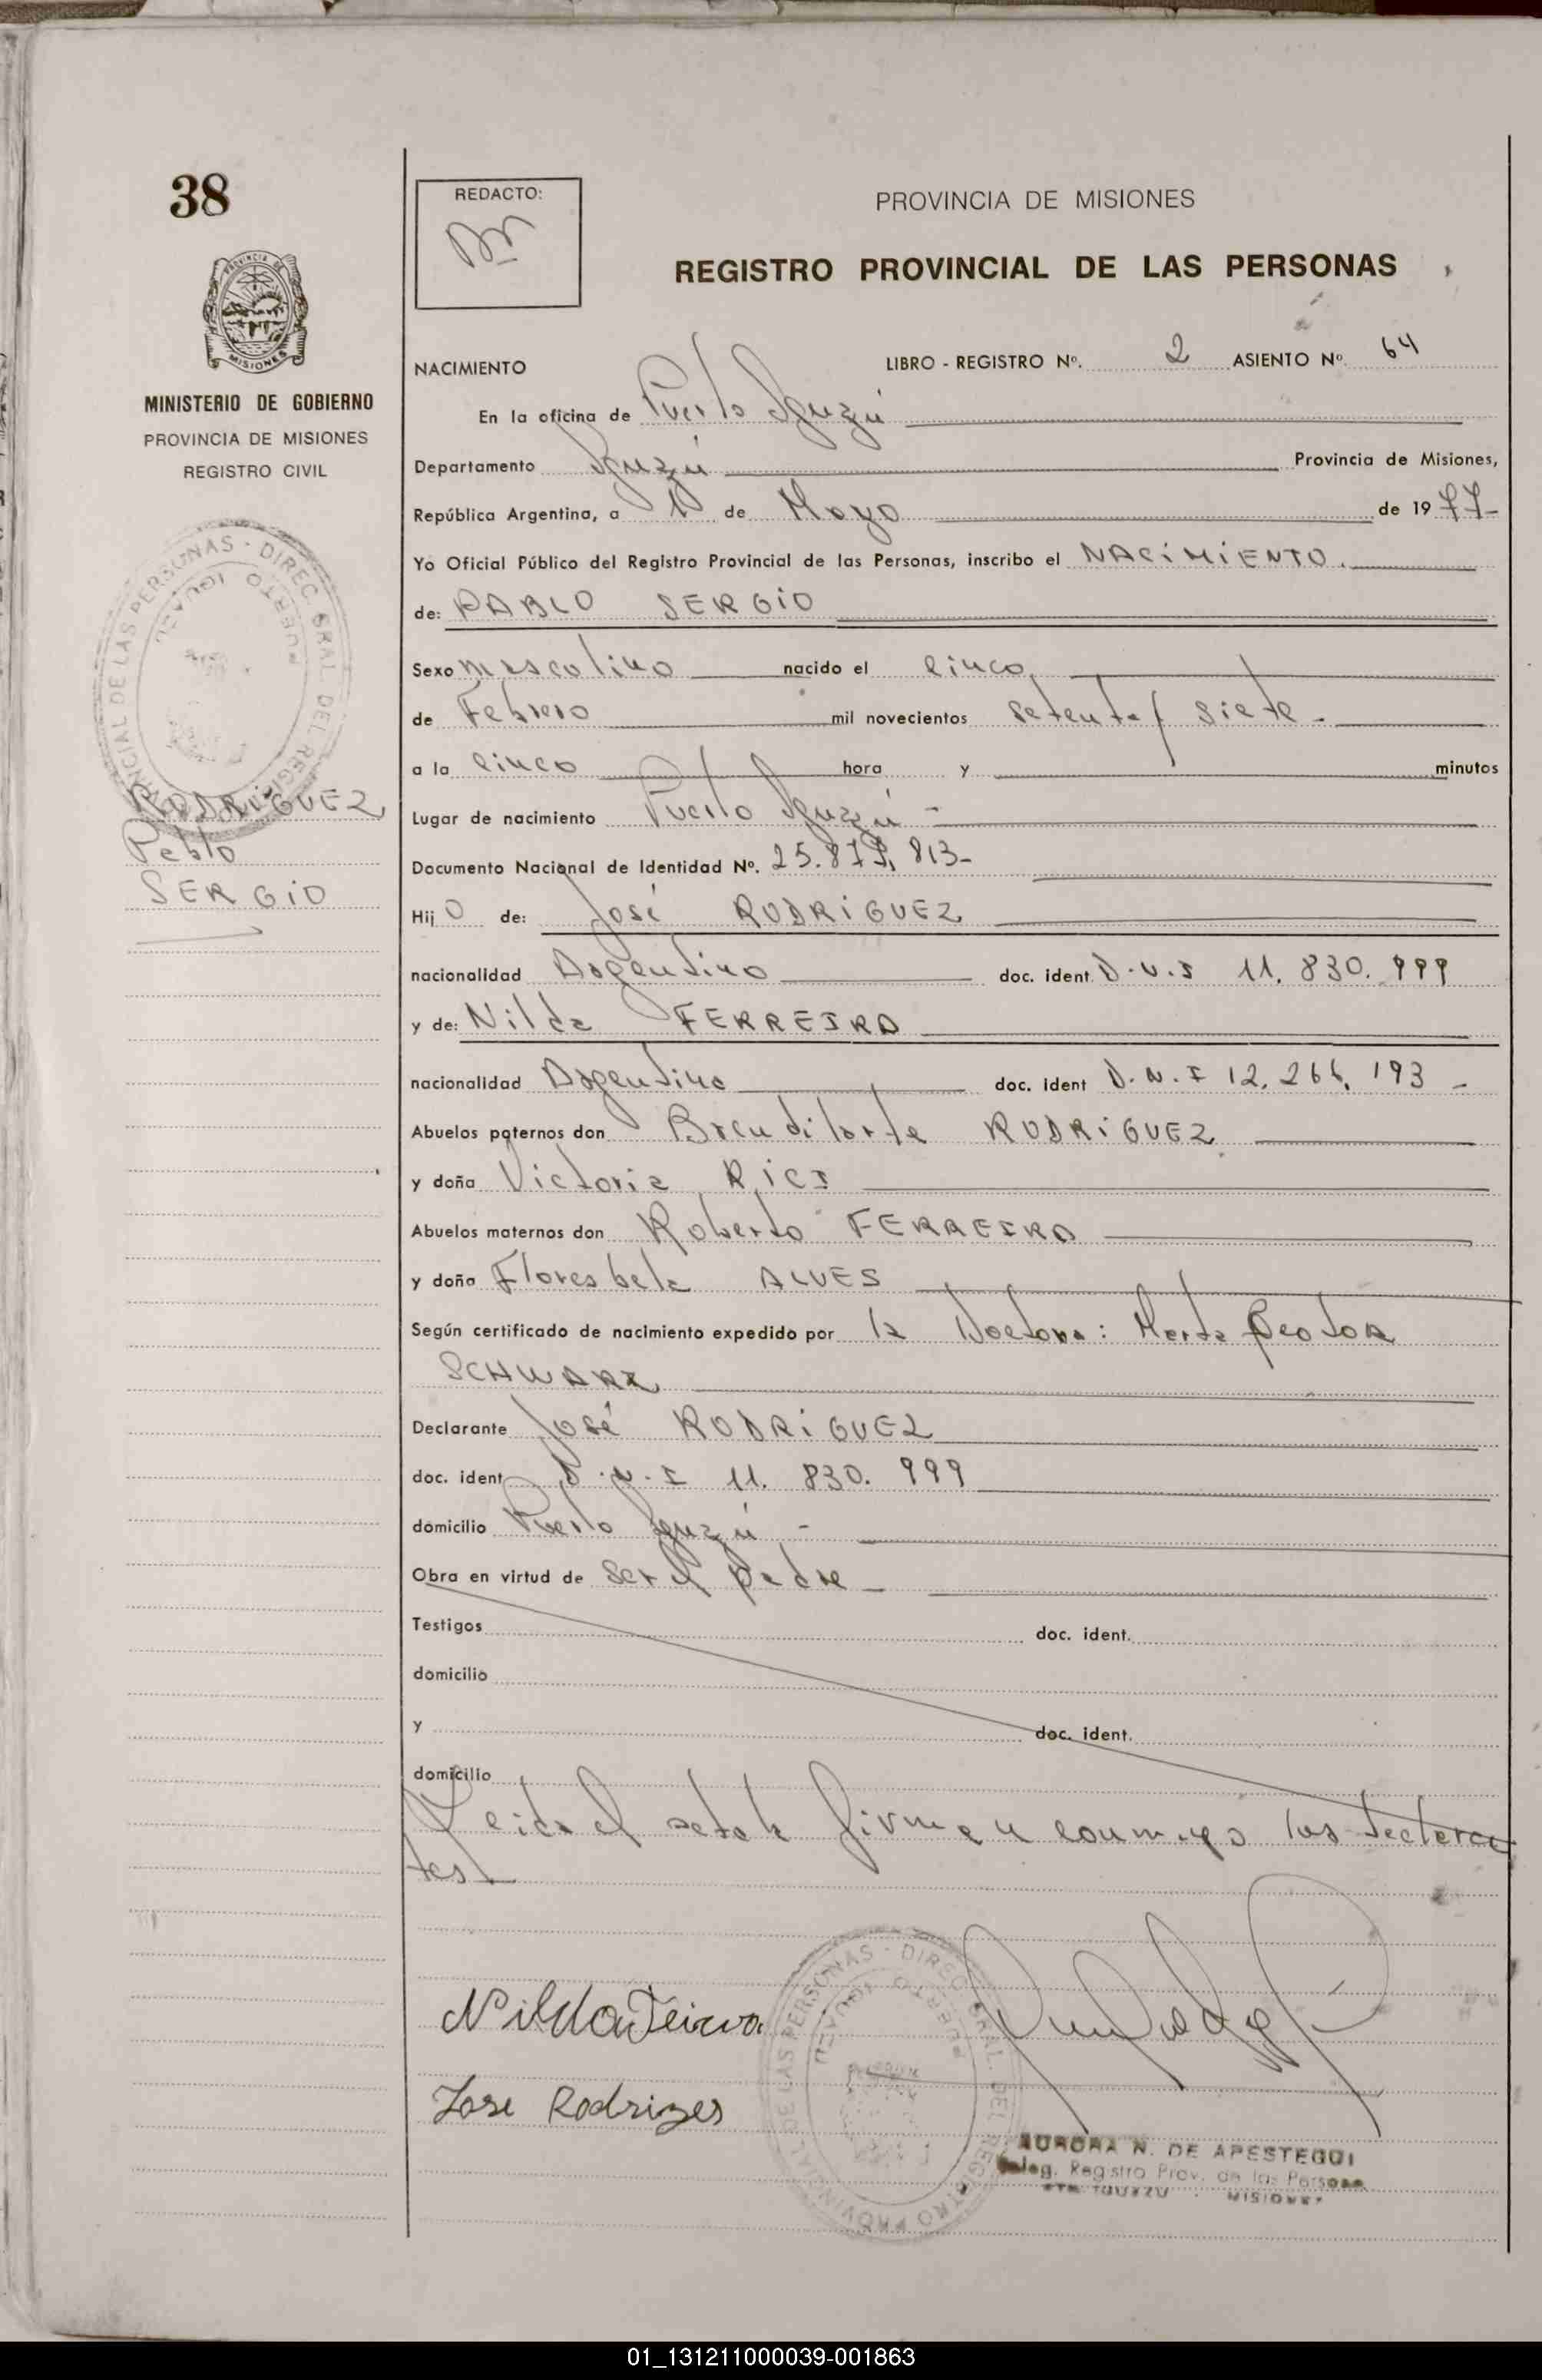 38
PROVINCIA DE
MISIONES
MINISTERIO DE GOBIERNO
PROVINCIA DE MISIONES
REGISTRO CIVIL
RODRIGUEZ
Pablo
SERGIO
REDACTO:
PROVINCIA DE MISIONES
REGISTRO PROVINCIAL DE LAS PERSONAS
NACIMIENTO LIBRO - REGISTRO Nº. 2 ASIENTO Nº. 64
En la oficina de Puerto Iguazú
Departamento Iguazú Provincia de Misiones,
República Argentina, a de Mayo de 1977-
Yo Oficial Público del Registro Provincial de las Personas, inscribo el NACIMIENTO.
de: PABLO SERGIO
Sexo masculino nacido el cinco
de Febrero mil novecientos setenta y siete-
a la cinco hora y minutos
Lugar de nacimiento Puerto Iguazú -
Documento Nacional de Identidad Nº.
Hijo de: José RODRIGUEZ
nacionalidad Argentino doc. ident. D.N.I 11.830.999
y de: Nilda FERREIRA
nacionalidad Argentina doc. ident D.N.I 12.266.193 -
Abuelos paternos don RODRIGUEZ
y doña Victoria
Abuelos maternos don Roberto FERREIRA
y doña Floresbela ALVES
Según certificado de nacimiento expedido por la Doctora: Marta
SCHWARZ
Declarante José RODRIGUEZ
doc. ident D.N.I 11.830.999
domicilio Puerto Iguazú -
Obra en virtud de ser el padre -
Testigos doc. ident.
domicilio
y doc. ident.
domicilio
Leida el acta la firman conmigo los declaran
tes
Nilda
Jose Rodrigues
AURORA N. DE APESTEGUI
Deleg. Registro Prov. de las Personas
PTO. IGUAZU - MISIONES
DIREC. GRAL. DEL REGISTRO PROVINCIAL DE LAS PERSONAS
PUERTO IGUAZU
01_131211000039-001863